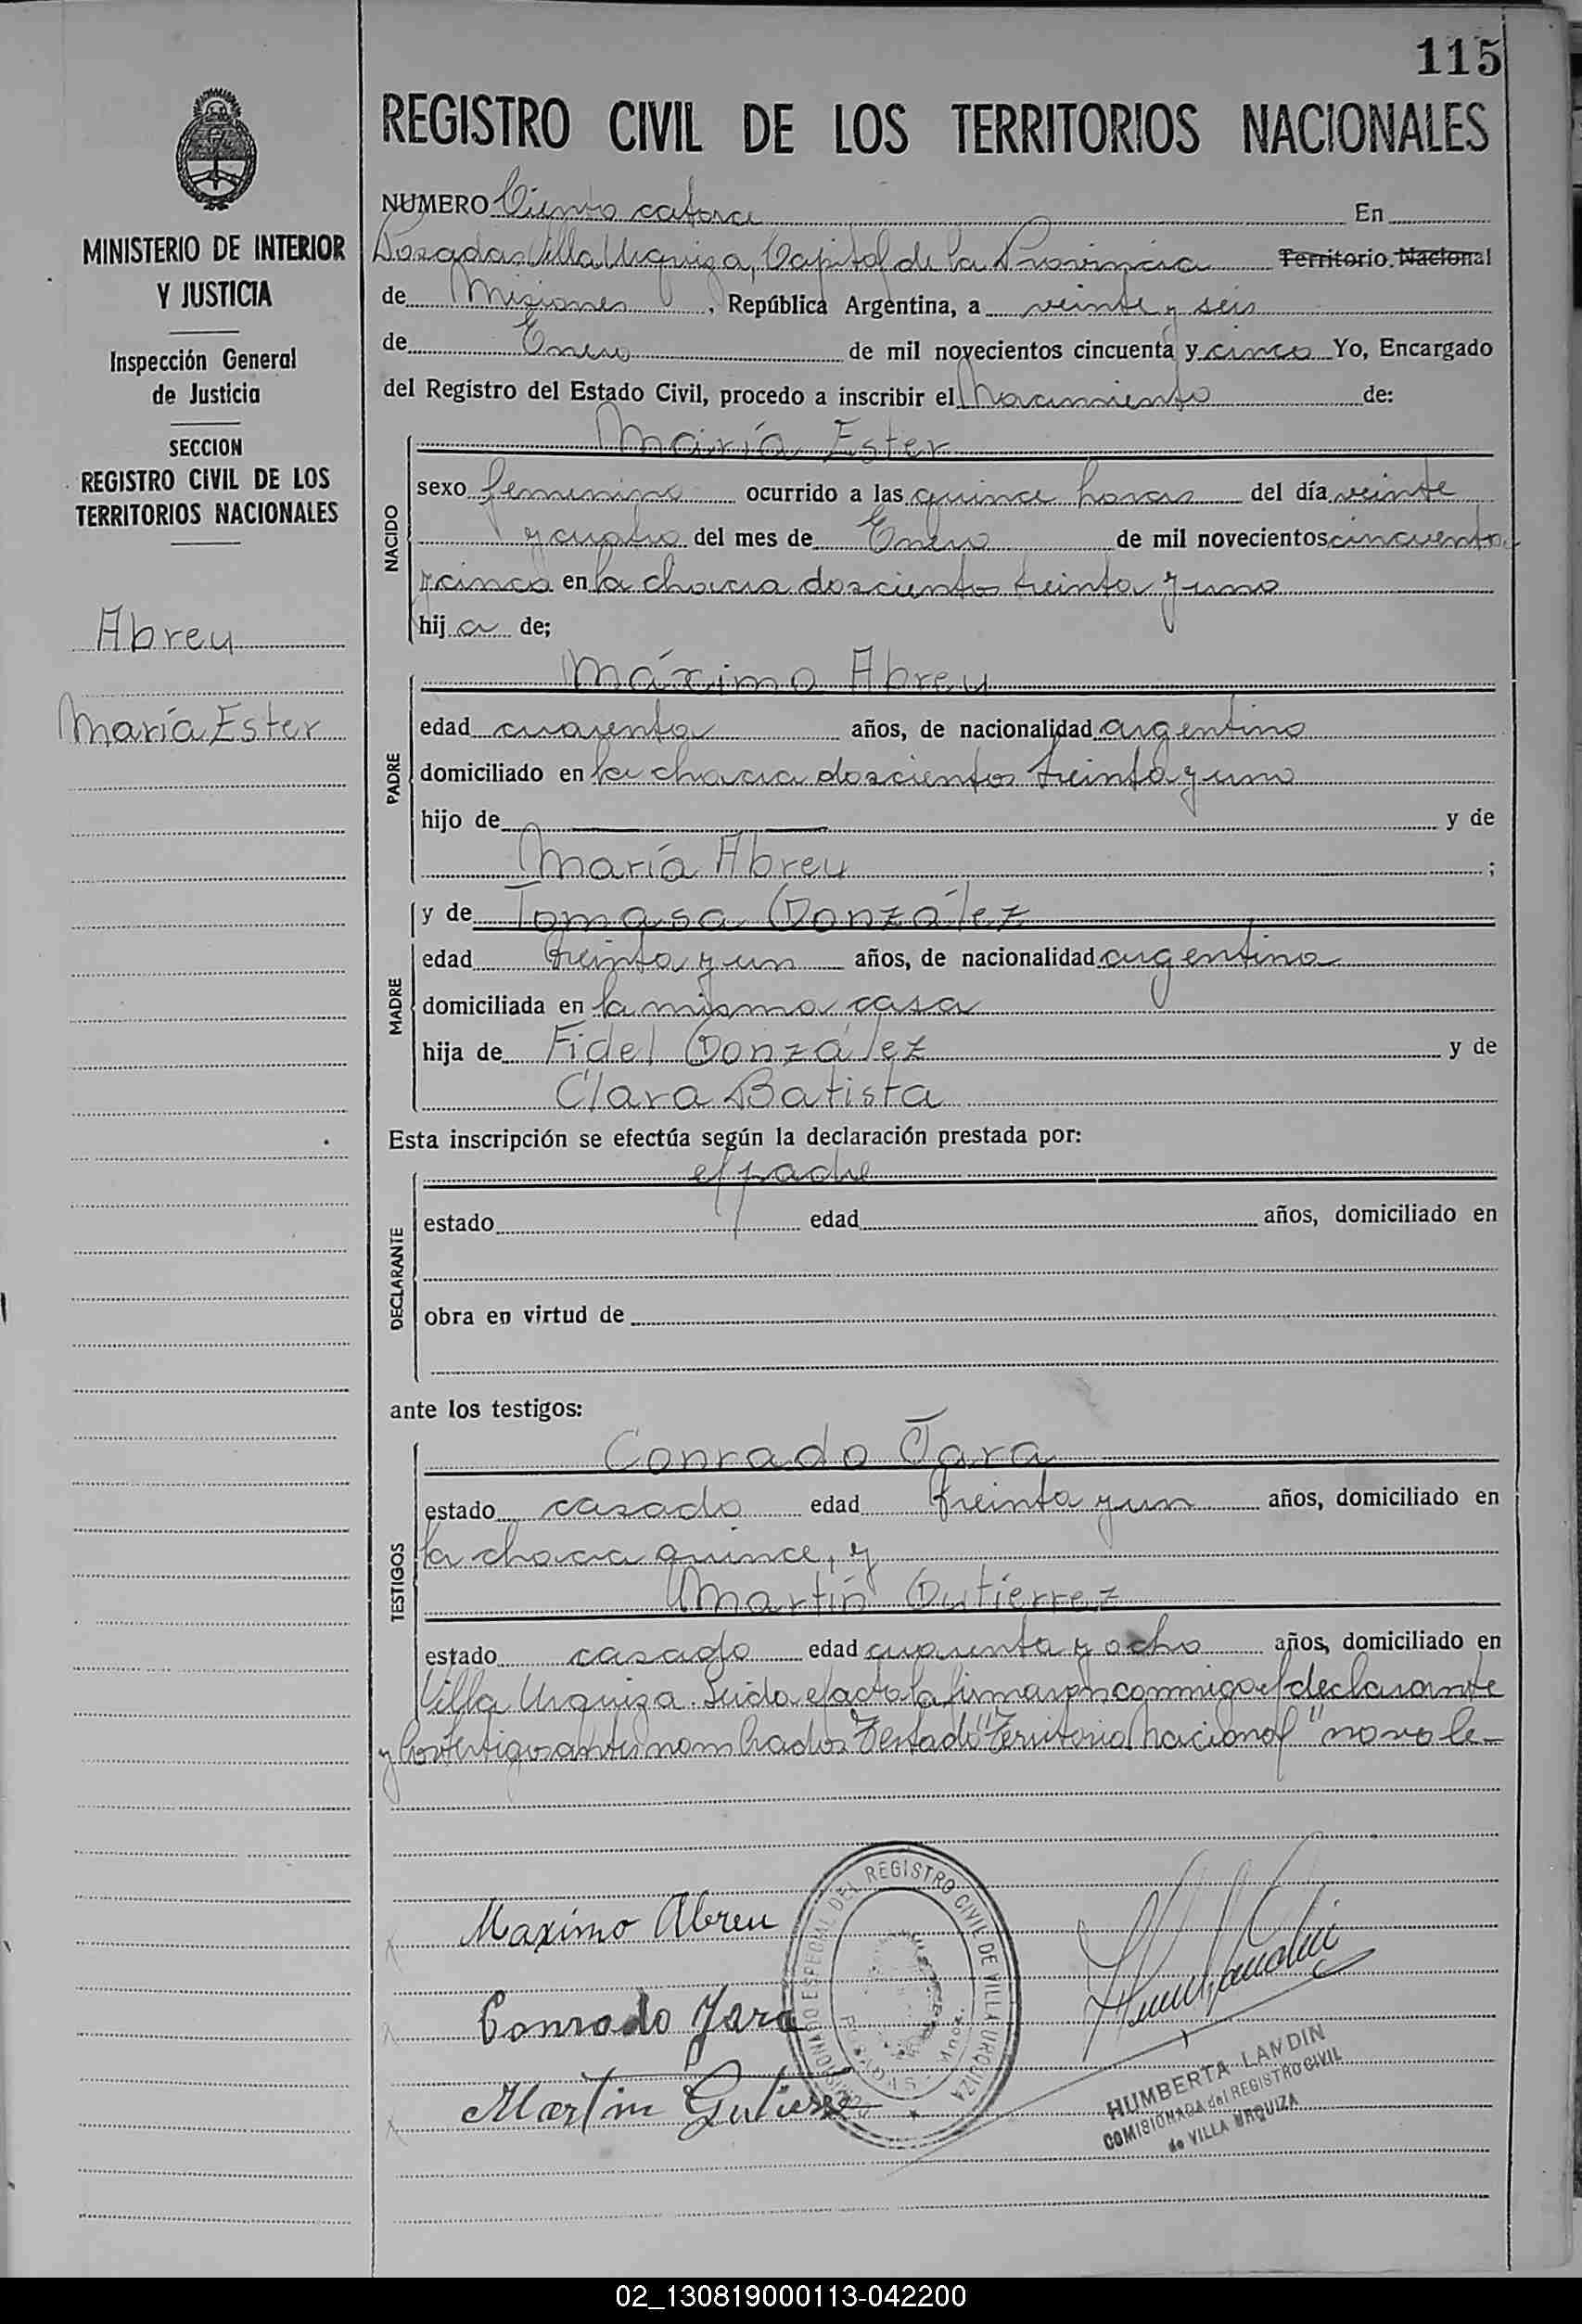 115
REGISTRO CIVIL DE LOS TERRITORIOS NACIONALES
MINISTERIO DE INTERIOR
Y JUSTICIA
Inspección General
de Justicia
SECCION
REGISTRO CIVIL DE LOS
TERRITORIOS NACIONALES
Abreu
María Ester
NUMERO Ciento catorce En
Posadas Villa Urquiza, Capital de la Provincia Territorio Nacional
de Misiones, República Argentina, a veinte y seis
de Enero de mil novecientos cincuenta y cinco Yo, Encargado
del Registro del Estado Civil, procedo a inscribir el Nacimiento de:
NACIDO
María Ester
sexo femenino ocurrido a las quince horas del día veinte
y cuatro del mes de Enero de mil novecientos cincuenta
y cinco en la chacra doscientos treinta y uno
hij a de;
PADRE
Máximo Abreu
edad cuarenta años, de nacionalidad argentino
domiciliado en la chacra doscientos treinta y uno
hijo de y de
María Abreu ;
MADRE
y de Tomasa González
edad treinta y un años, de nacionalidad argentina
domiciliada en la misma casa
hija de Fidel González y de
Clara Batista
Esta inscripción se efectúa según la declaración prestada por:
DECLARANTE
el padre
estado edad años, domiciliado en
obra en virtud de
ante los testigos:
TESTIGOS
Conrado Jara
estado casado edad treinta y un años, domiciliado en
la chacra quince, y
Martín Gutiérrez
estado casado edad cuarenta y ocho años, domiciliado en
Villa Urquiza. Leída el acta la firmaron conmigo el declarante
y los testigos antes nombrados Testado "Territorio Nacional" no vale-
Maximo Abreu
Conrado Jara
Martin Gutierre
COMISIONADO ESPECIAL DEL REGISTRO CIVIL DE VILLA URQUIZA
POSADAS - Mnes.
HUMBERTA LANDIN
COMISIONADA del REGISTRO CIVIL
de VILLA URQUIZA
02_130819000113-042200